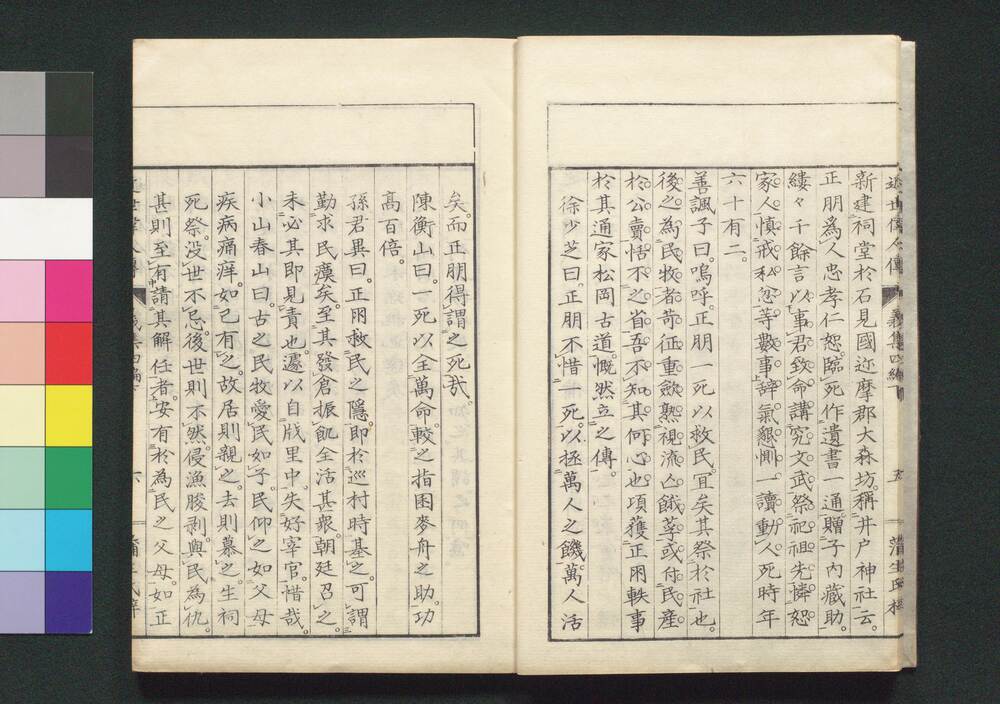 新建祠堂於石見國迩摩郡大森坊。稱井戸神社云。
正朋爲人忠孝仁恕。臨死作遺書一通。贈子内藏助。
縷々千餘言。以事君致命。講究文武。祭祀祖先。憐恕
家人。慎戒私忿等數事。辞氣懇惻。一讀動人。死時年
六十有二。
善諷子曰。嗚呼。正朋一死以救民。冝矣其祭於社也。
後之為民牧者。苛征重歛。熟視流亡餓莩。或付民產
於公賣。恬不之省。吾不知其何心也。項獲正朋軼事
於其通家松岡古道。慨然立之傳。
徐少芝曰。正朋不惜一死。以拯萬人之饑。萬人活
矣。而正朋得謂之死哉。
陳衡山曰。一死以全萬命。較之指囷麥舟之助。功
髙百倍。
孫君異曰。正朋救民之隱。即於巡村時基之。可謂
勤求民瘼矣。至其發倉振飢。全活甚衆。朝廷召之。
未必其即見責也。遽以自戕里中。失好宰官。惜哉。
小山春山曰。古之民牧愛民如子。民仰之如父母
疾病痛痒。如己有之。故居則親之。去則慕之。生祠
死祭。没世不忘。後世則不然。侵漁脧剥。與民為仇。
甚則至有請其解任者。安有於為民之父母。如正